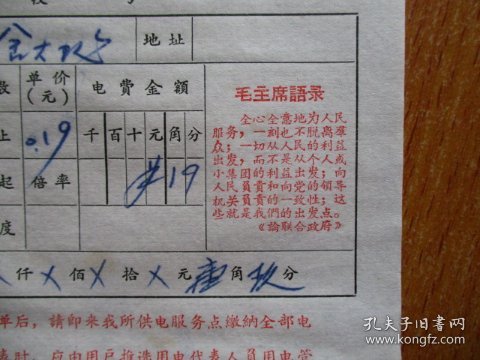 地址
单价
(元)
电費金額
毛主席語录
全心全意地为人民
服务，一刻也不脱离羣
众；一切从人民的利益
出发，而不是从个人或
小集团的利益出发；向
人民負責和向党的领导
机关負責的一致性；这
些就是我們的出发点。
《論联合政府》
0.19
千百十元角分
起
倍率
19
度
仟 X 佰 X 拾 X 元 壹 角 玖 分
单后，請即来我所供电服务点缴納全部电
应由用戶推选用电代表人員用电管
孔夫子旧书网